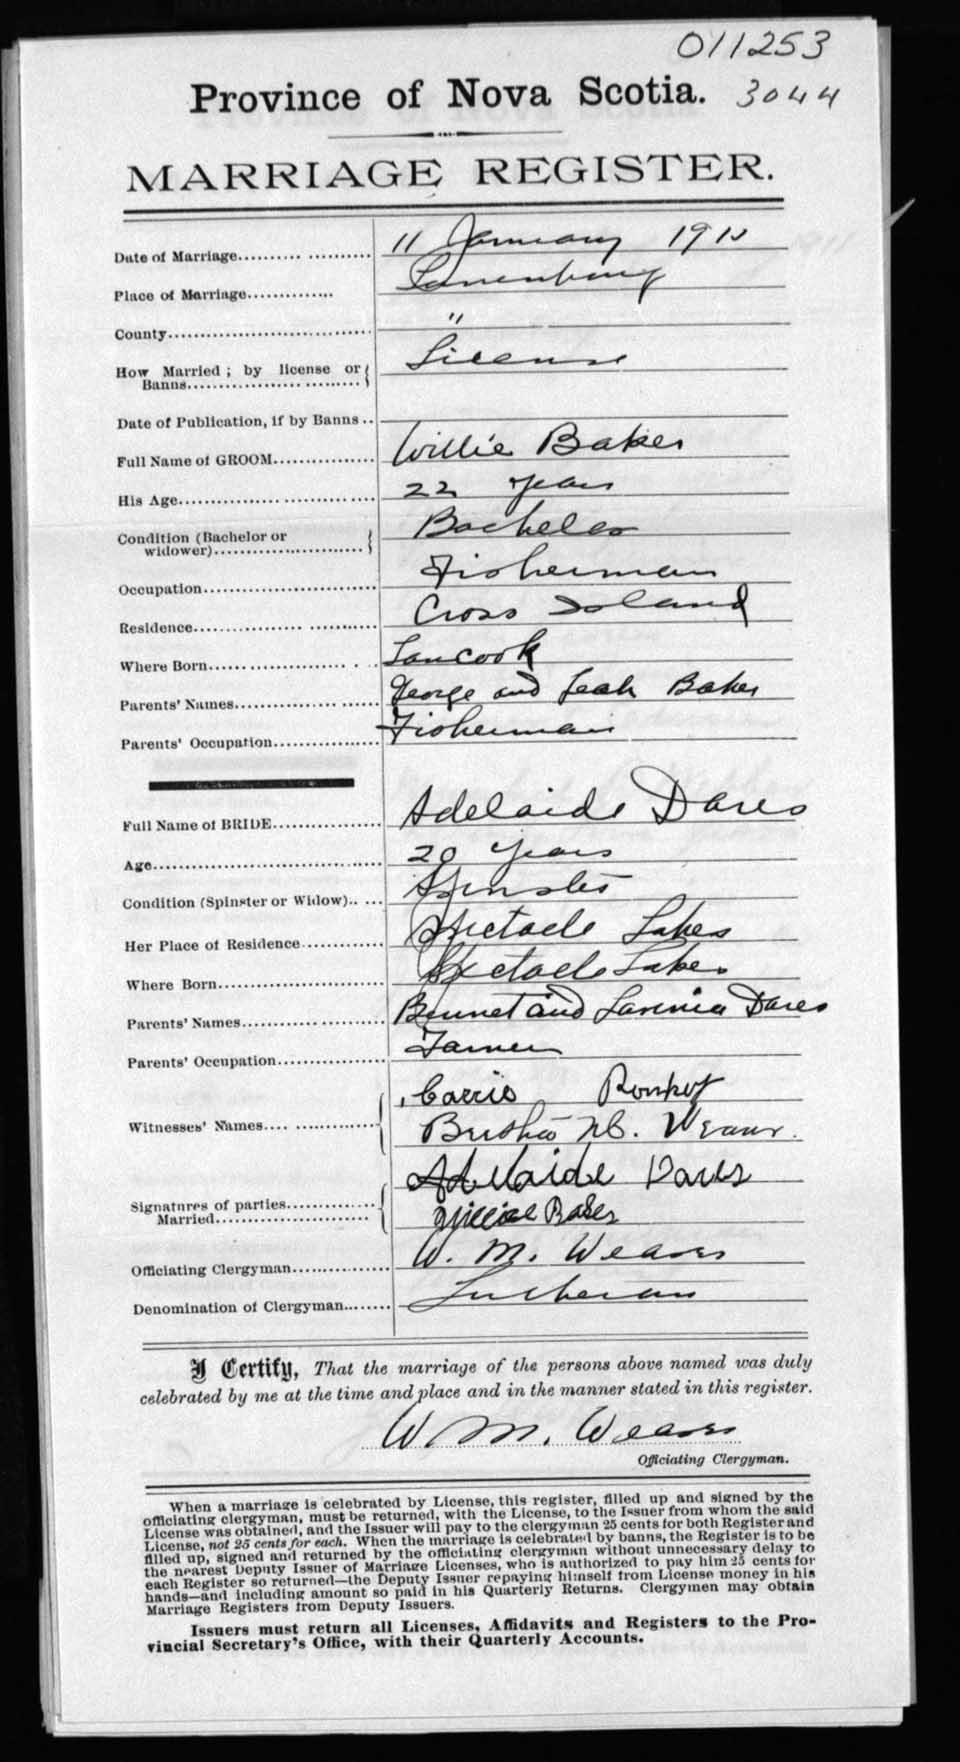 011253
Province of Nova Scotia. 3044
MARRIAGE REGISTER.
Date of Marriage.................... 11 January 191
Place of Marriage............. Lunenburg
County.............................. "
How Married ; by license or Banns.............................. License
Date of Publication, if by Banns..
Full Name of GROOM............... Willie Baker
His Age.............................. 22 years
Condition (Bachelor or widower)........................ Bachelor
Occupation......................... Fisherman
Residence........................... Cross Island
Where Born......................... Tancook
Parents' Names..................... George and Leah Baker
Parents' Occupation................ Fisherman
Full Name of BRIDE................ Adelaide Dares
Age................................. 20 years
Condition (Spinster or Widow)..... Spinster
Her Place of Residence............ Spectacle Lakes
Where Born........................ Spectacle Lakes
Parents' Names..................... Bennet and Lavinia Dares
Parents' Occupation................ Farmer
Witnesses' Names.................. Carrie
Weaver.
Signatures of parties Married...................... Adelaide Dares
Willie Baker
Officiating Clergyman.............. W. M. Weaver
Denomination of Clergyman........ Lutheran
I Certify, That the marriage of the persons above named was duly
celebrated by me at the time and place and in the manner stated in this register.
W. M. Weaver
Officiating Clergyman.
When a marriage is celebrated by License, this register, filled up and signed by the
officiating clergyman, must be returned, with the License, to the Issuer from whom the said
License was obtained, and the Issuer will pay to the clergyman 25 cents for both Register and
License, not 25 cents for each. When the marriage is celebrated by banns, the Register is to be
filled up, signed and returned by the officiating clergyman without unnecessary delay to
the nearest Deputy Issuer of Marriage Licenses, who is authorized to pay him 25 cents for
each Register so returned—the Deputy Issuer repaying himself from License money in his
hands—and including amount so paid in his Quarterly Returns. Clergymen may obtain
Marriage Registers from Deputy Issuers.
Issuers must return all Licenses, Affidavits and Registers to the Pro-
vincial Secretary's Office, with their Quarterly Accounts.